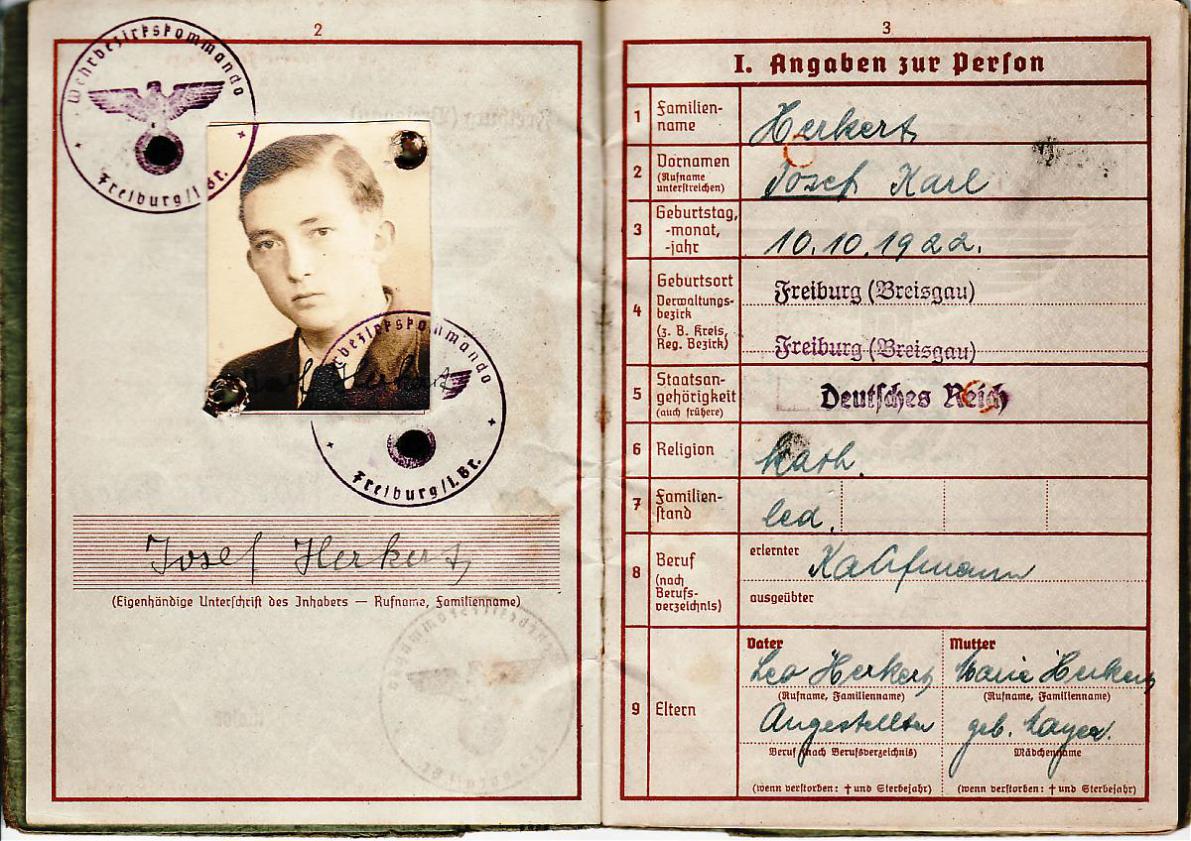 2
Wehrbezirkskommando
Freiburg/i. Br.
Wehrbezirkskommando
Freiburg/i. Br.
Josef Herkert
(Eigenhändige Unterschrift des Inhabers — Rufname, Familienname)
3
I. Angaben zur Person
1 Familien-
name
Herkert
2 Vornamen
(Rufname
unterstreichen)
Josef Karl
3 Geburtstag,
-monat,
-jahr
10.10.1922.
4 Geburtsort
Verwaltungs-
bezirk
(z. B. Kreis,
Reg. Bezirk)
Freiburg (Breisgau)
Freiburg (Breisgau)
5 Staatsan-
gehörigkeit
(auch frühere)
Deutsches Reich
6 Religion
kath.
7 Familien-
stand
led.
8 Beruf
(nach
Berufs-
verzeichnis)
erlernter Kaufmann
ausgeübter
9 Eltern
Vater Mutter
Leo Herkert Marie Herkert
(Rufname, Familienname) (Rufname, Familienname)
Angestellter geb. Mayer.
Beruf (nach Berufsverzeichnis) Mädchenname
(wenn verstorben: † und Sterbejahr) (wenn verstorben: † und Sterbejahr)